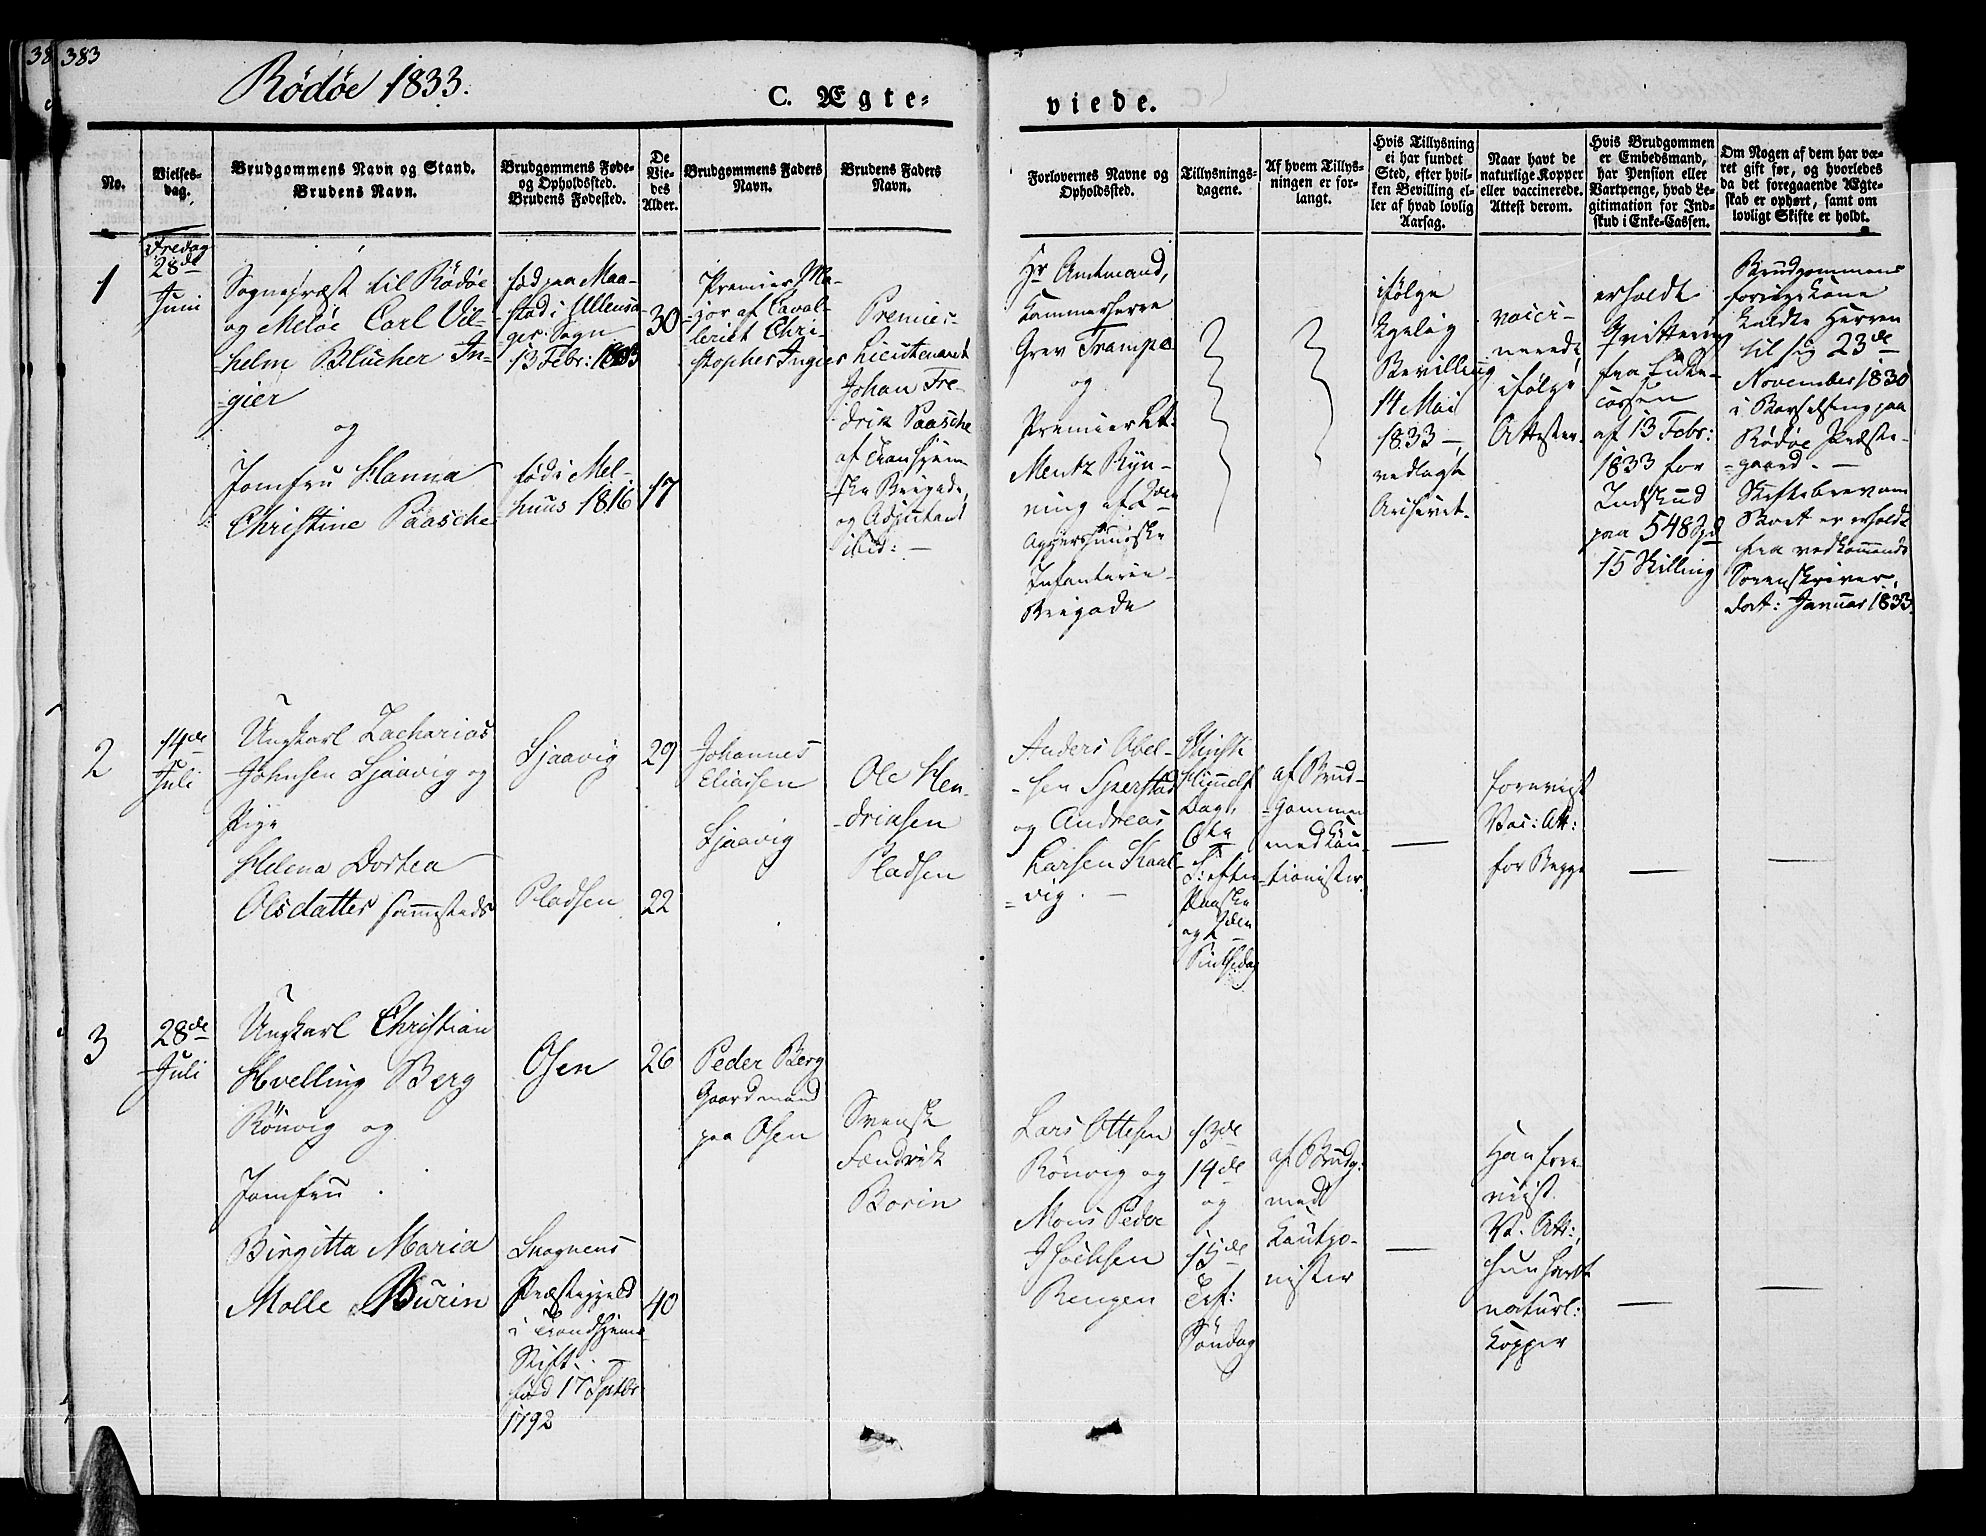 38
383
Rödöe 1833.
C. Ægte-
viede.
No.
Vielses-
dag.
Brudgommens Navn og Stand.
Brudens Navn.
Brudgommens Føde-
og Opholdssted.
Brudens Fødested.
De
Vie-
des
Alder.
Brudgommens Faders
Navn.
Brudens Faders
Navn.
Forlovernes Navne og
Opholdssted.
Tillysnings-
dagene.
Af hvem Tillys-
ningen er for-
langt.
Hvis Tillysning
ei har fundet
Sted, efter hvil-
ken Bevilling el-
ler af hvad lovlig
Aarsag.
Naar havt de
naturlige Kopper
eller vaccinerede.
Attest derom.
Hvis Brudgommen
er Embedsmand,
har Pension eller
Vartpenge, hvad Le-
gitimation for Ind-
skud i Enke-Cassen.
Om Nogen af dem har væ-
ret gift før, og hvorledes
da det foregaaende Ægte-
skab er ophørt, samt om
lovligt Skifte er holdt.
1
Fredag
28de
Juni
Sognepræst til Rödöe
og Melöe Carl Vil-
helm Blücher In-
gier
og
Jomfru Hanna
Christine Paasche
fød paa Maa-
stad i Ullensa-
ger Sogn
13 Febr: 1803
fød i Mel-
huus 1816
30
17
Premier Ma-
jor af Caval-
leriet Chri-
stopher Ingier
Premier-
Lieutenant
Johan Fre-
drik Paasche
af Trondhjem-
ske Brigade,
og Adjutant
ibid: -
Hr Amtmand,
Kammerherre
Grev Trampe
og
Premier Lt.
Mentz Ryn-
ning af 2den
Aggershuusiske
Infanterie-
Brigade
ifølge
Kgelig
Bevilling
14 Mai
1833 -
vedlagte
Archivet.
vacci-
nerede
ifølge
Attester.
erholdt
Qvittering
fra Enke-
cassen
af 13 Febr:
1833 for
Indskud
paa 548 Spd
15 Skilling
Brudgommens
forrige Kone
kaldte Herren
til sig 23de
November 1830
i Barselseng paa
Rödöe Præste-
gaard. -
Skiftebrev om
Boet er erholdt
fra vedkommende
Sorenskriver,
dat: Januar 1833.
2
14de
Juli
Ungkarl Zacharias
Johnsen Sjaavig og
Pige
Helena Dortea
Olsdatter sammesteds
Sjaavig
Pladsen
29
22
Johannes
Eliassen
Sjaavig
Ole Hen-
driksen
Pladsen
Anders Abel-
sen Sperstad
og Andreas
Larsen Skaal-
vig. -
Christi
Himmelf.
Dag,
6te
S: efter
Paaske
og 2den
Pintsedag
af Brud-
gommen
med Kau-
tionister.
foreviist
Vac: Att:
for Begge
3
28de
Juli
Ungkarl Christian
Hvelling Berg
Rönvig og
Jomfru
Birgitta Maria
Molle Burin
Osen
Snaasens
Præstegjeld
i Trondhjems
Stift
fød 17 Septbr
1792
26
40
Peder Berg
Gaardmand
paa Osen
Svensk
Fændrik
Borin
Lars Ottesen
Rönvig og
Mons Peder
Isachsen
Rengen
13de
14de
og
15de
Tref:
Søndag
af Brudg:
med
Kautio-
nister
Han fore-
viist
V. Att:,
hun havt
naturl:
Kopper